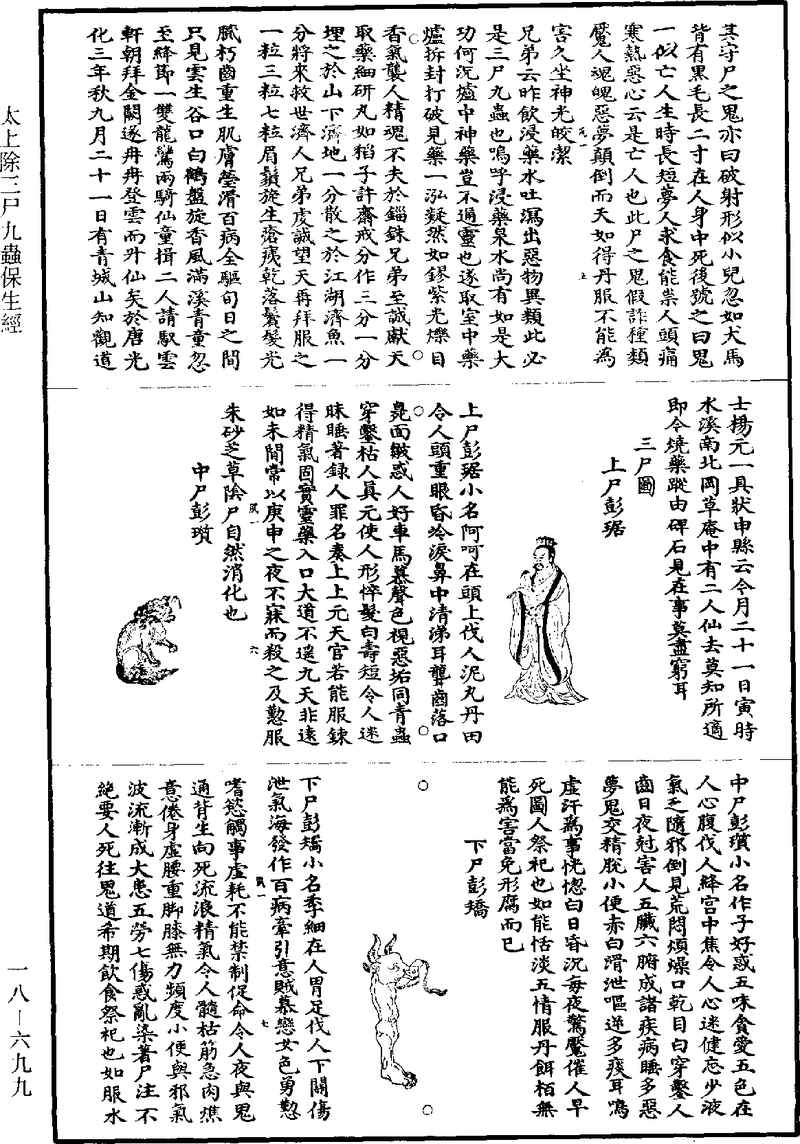 太上除三尸九蟲保生經
一八—六九九
其守尸之鬼亦曰破射形似小兒忽如犬馬
皆有黑毛長二寸在人身中死後號之曰鬼
一似亡人生時長短夢人求食能祟人頭痛
寒熱惡心云是亡人也此尸之鬼假詐種類
魘人魂魄惡夢顛倒而夭如得丹服不能為
害久坐神光皎潔
兄弟云昨飲浸藥水吐瀉出惡物異類此必
是三尸九蟲也嗚呼浸藥泉水尚有如是大
功何況爐中神藥豈不通靈也遂取室中藥
爐拆封打破見藥一泓凝然如鏐紫光爍目
香氣襲人精魂不失於錙銖兄弟至誠獻天
取藥細研丸如稻子許齋戒分作三分一分
埋之於山下濟地一分散之於江湖濟魚一
分將來救世濟人兄弟虔誠望天再拜服之
一粒三粒七粒眉鬚旋生瘡痍乾落鬢髮光
膩朽齒重生肌膚瑩滑百病全驅旬日之間
只見雲生谷口白鶴盤旋香風滿溪青童忽
至絳節一雙龍鸞兩騎仙童揖二人請馭雲
軒朝拜金闕遂冉冉登雲而升仙矣於唐光
化三年秋九月二十一日有青城山知觀道
士楊元一具狀申縣云今月二十一日寅時
水溪南北岡草庵中有二人仙去莫知所適
即今燒藥蹤由碑石見在事莫盡窮耳
三尸圖
上尸彭琚
上尸彭琚小名阿呵在頭上伐人泥丸丹田
令人頭重眼昏冷淚鼻中清涕耳聾齒落口
臭面皺惑人好車馬慕聲色視惡垢同青蟲
穿鑿枯人真元使人形悴髮白壽短令人迷
昧睡著錄人罪名奏上上元天官若能服鍊
得精氣固實靈藥入口大道不遥九天非遠
如未閒常以庚申之夜不寐而殺之及懃服
朱砂乏草陰尸自然消化也
中尸彭瓆
中尸彭瓆小名作子好惑五味貪愛五色在
人心腹伐人絳宮中焦令人心迷健忘少液
氣乏隨邪倒見荒悶煩燥口乾目白穿鑿人
齒日夜尅害人五臟六腑成諸疾病睡多惡
夢鬼交精脫小便赤白滑泄嘔逆多痰耳鳴
虛汗為事恍惚白日昏沉每夜驚魘催人早
死圖人祭祀也如能恬淡五情服丹餌栢無
能為害當免形腐而已
下尸彭矯
下尸彭矯小名季細在人胃足伐人下關傷
泄氣海發作百病牽引意賊慕戀女色勇懃
嗜慾觸事虛耗不能禁制促命令人夜與鬼
通背生向死流浪精氣令人髓枯筋急肉燋
意倦身虛腰重脚膝無力頻度小便與邪氣
波流漸成大患五勞七傷惑亂染著尸注不
絕要人死往鬼道希期飲食祭祀也如服水